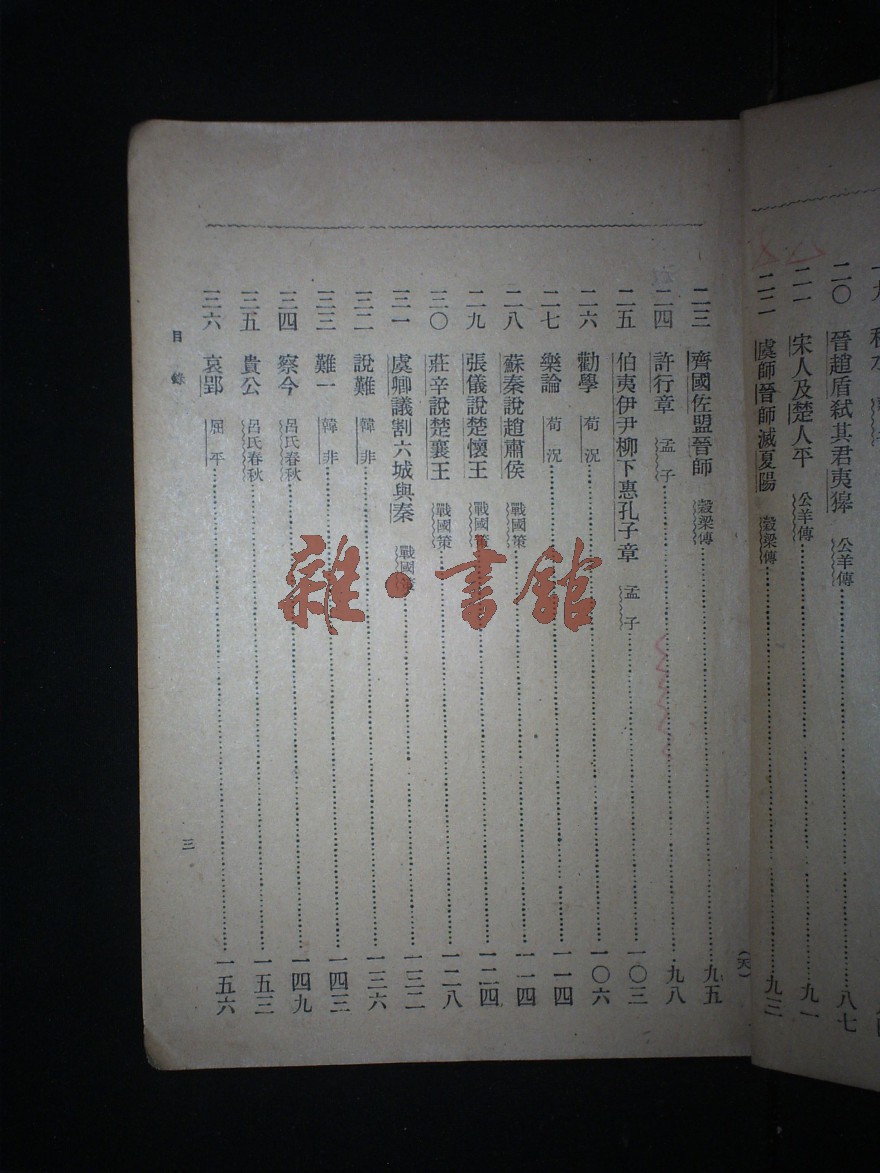 二〇 晉趙盾弒其君夷獋 公羊傳……八七
二一 宋人及楚人平 公羊傳……九一
二二 虞師晉師滅夏陽 穀梁傳……九三
(天)
二三 齊國佐盟晉師 穀梁傳……九五
二四 許行章 孟子……九八
二五 伯夷伊尹柳下惠孔子章 孟子……一〇三
二六 勸學 荀況……一〇六
二七 樂論 荀況……一一四
二八 蘇秦說趙肅侯 戰國策……一一四
二九 張儀說楚懷王 戰國策……一二四
三〇 莊辛說楚襄王 戰國策……一二八
三一 虞卿議割六城與秦 戰國策……一三二
三二 說難 韓非……一三六
三三 難一 韓非……一四三
三四 察今 呂氏春秋……一四九
三五 貴公 呂氏春秋……一五三
三六 哀郢 屈平……一五六
目錄
三
雜·書館